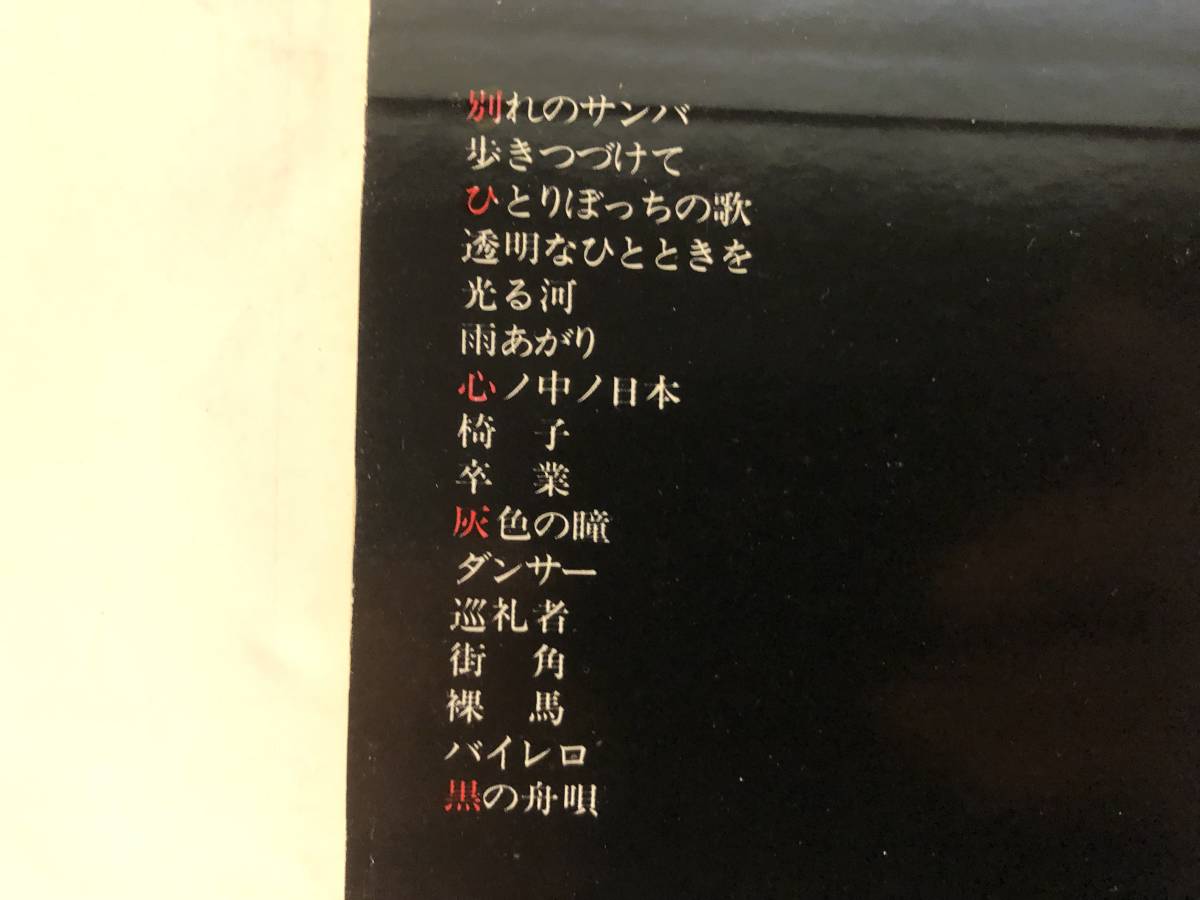 別れのサンバ
歩きつづけて
ひとりぼっちの歌
透明なひとときを
光る河
雨あがり
心ノ中ノ日本
椅　子
卒　業
灰色の瞳
ダンサー
巡礼者
街　角
裸　馬
バイレロ
黒の舟唄